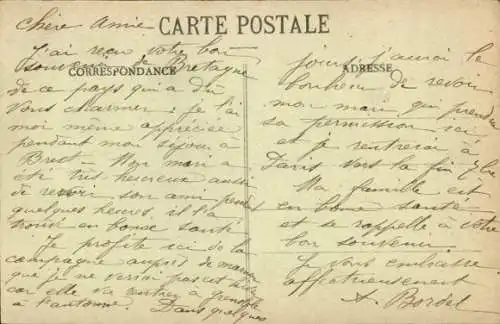 Chère Amie
CARTE POSTALE
J'ai reçu votre bon
souvenir de Bretagne
CORRESPONDANCE
de ce pays qui a dû
vous charmer ; je l'ai
moi même appréciée
pendant mon séjour à
Brest. Mon mari a
été très heureux aussi
de revoir son ami pendt
quelques heures, il l'a
trouvé en bonne santé
Je profite ici de la
campagne auprès de maman
que je ne verrai pas cet
car elle va rentrer à
à l'automne. Dans quelques
jours j'aurai le
ADRESSE
bonheur de revoir
mon mari qui prendra
sa permission ici
et je rentrerai à
Paris vers la fin
Ma famille est
en bonne santé
et se rappelle à votre
bon souvenir.
Je vous embrasse
affectueusement
A. Bordel